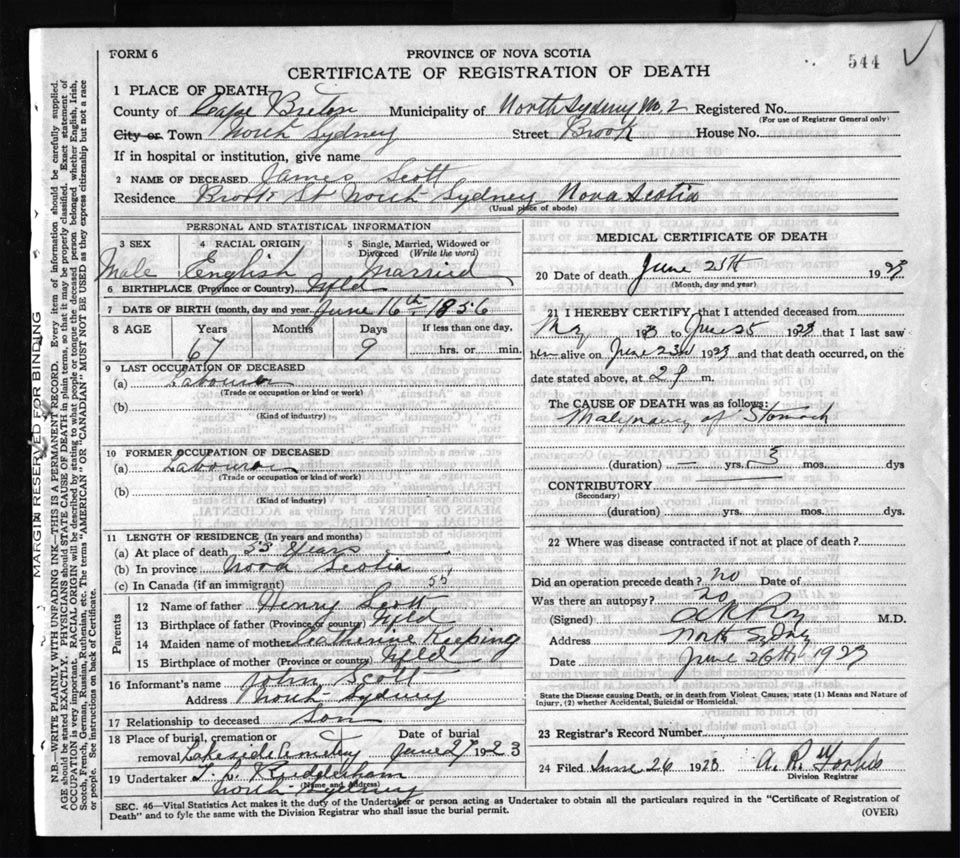 FORM 6
PROVINCE OF NOVA SCOTIA
544
CERTIFICATE OF REGISTRATION OF DEATH
1 PLACE OF DEATH
County of Cape Breton Municipality of North Sydney No. 2 Registered No.
(For use of Registrar General only)
City or Town North Sydney Street Brook House No.
If in hospital or institution, give name
2 NAME OF DECEASED James Scott
Residence Brook St North Sydney Nova Scotia
(Usual place of abode)
PERSONAL AND STATISTICAL INFORMATION
3 SEX 4 RACIAL ORIGIN 5 Single, Married, Widowed or Divorced (Write the word)
Male English Married
6 BIRTHPLACE (Province or Country) Nfld
7 DATE OF BIRTH (month, day and year) June 16th 1856
8 AGE Years Months Days If less than one day,
67 9 hrs. or min.
9 LAST OCCUPATION OF DECEASED
(a) Labourer
(Trade or occupation or kind or work)
(b)
(Kind of industry)
10 FORMER OCCUPATION OF DECEASED
(a) Labourer
(Trade or occupation or kind or work)
(b)
(Kind of industry)
11 LENGTH OF RESIDENCE (In years and months)
(a) At place of death 55 Years
(b) In province Nova Scotia
(c) In Canada (if an immigrant) 55
Parents
12 Name of father Henry Scott
13 Birthplace of father (Province or country) Nfld
14 Maiden name of mother Catherine Keeping
15 Birthplace of mother (Province or country) Nfld
16 Informant's name John Scott
Address North Sydney
17 Relationship to deceased Son
18 Place of burial, cremation or removal Date of burial
Lakeside Cemetery June 27 1923
19 Undertaker
(Name and Address)
North Sydney
MEDICAL CERTIFICATE OF DEATH
20 Date of death June 25th 1923
(Month, day and year)
21 I HEREBY CERTIFY, that I attended deceased from
1923 to June 25 1923 that I last saw
him alive on June 23rd 1923 and that death occurred, on the
date stated above, at 2 P m.
The CAUSE OF DEATH was as follows:
Malignancy of Stomach
(duration) — yrs. 3 mos. dys
CONTRIBUTORY
(Secondary)
(duration) yrs. mos. dys.
22 Where was disease contracted if not at place of death?
Did an operation precede death? no Date of
Was there an autopsy? no
(Signed) M.D.
Address North Sydney
Date June 26th 1923
State the Disease causing Death, or in death from Violent Causes, state (1) Means and Nature of
Injury, (2) whether Accidental, Suicidal or Homicidal.
23 Registrar's Record Number
24 Filed June 26 1923 A. R. Forbes
Division Registrar
SEC. 46—Vital Statistics Act makes it the duty of the Undertaker or person acting as Undertaker to obtain all the particulars required in the "Certificate of Registration of
Death" and to fyle the same with the Division Registrar who shall issue the burial permit.
(OVER)
MARGIN RESERVED FOR BINDING
N.B.—WRITE PLAINLY WITH UNFADING INK—THIS IS A PERMANENT RECORD. Every item of information should be carefully supplied.
AGE should be stated EXACTLY. PHYSICIANS should STATE CAUSE OF DEATH in plain terms, so that it may be properly classified. Exact statement of
OCCUPATION is very important. RACIAL ORIGIN will be described by stating to what people or tongue the deceased person belonged, whether English, Irish,
Scotch, French, German, Russian, Ruthenian, etc. The terms "AMERICAN" or "CANADIAN" MUST NOT BE USED as they express citizenship but not a race
or people. See instructions on back of Certificate.